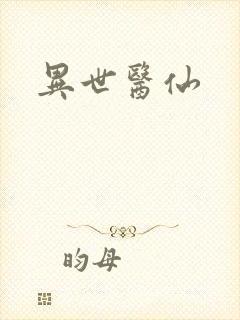 異世醫仙
昀母